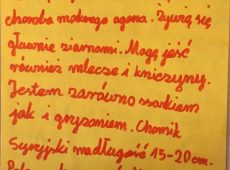 choroba mokrego ogona. Żywią się
głównie ziarnami. Mogą jeść
również mlecze i koniczynę.
Jestem zarówno ssakiem
jak i gryzoniem. Chomik
Syryjski ma długość 15-20cm.